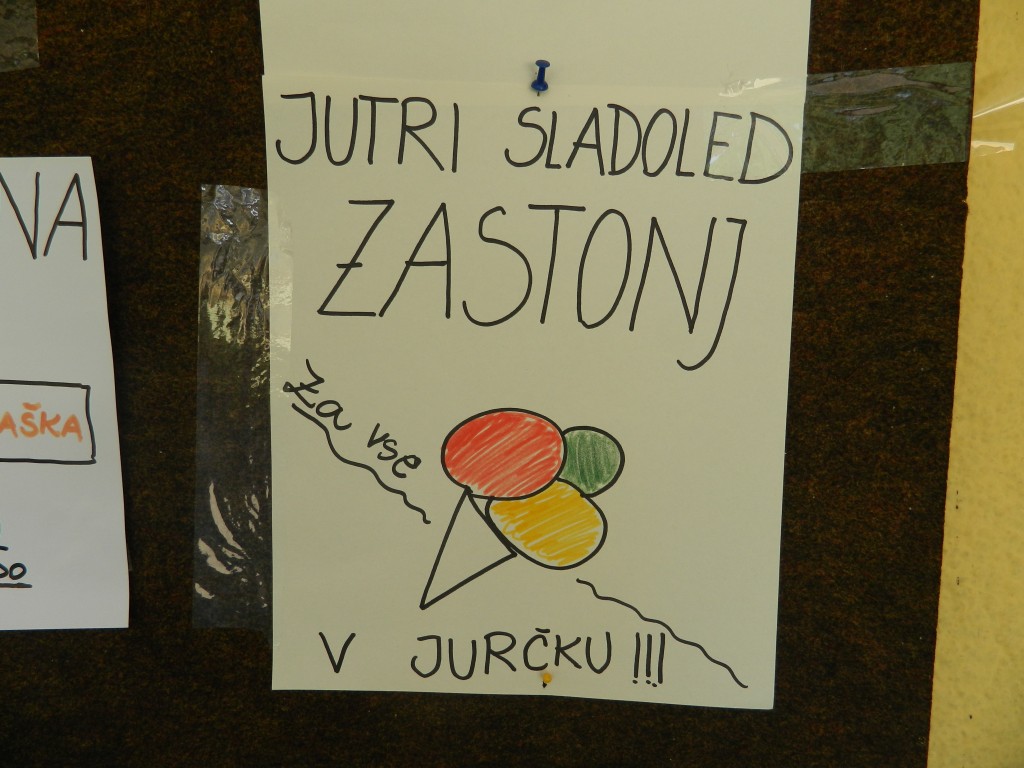 JUTRI SLADOLED
ZASTONJ
Za vse
V JURČKU!!!
NA
AŠKA